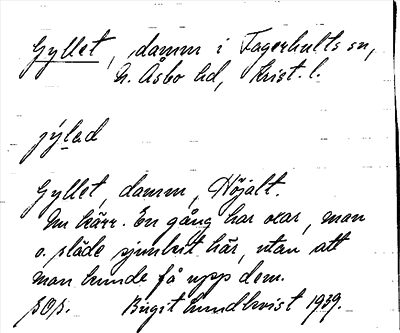 Gyllet, damm i Fagerhults sn,
N. Åsbo hd, Krist. l.
jýləd
Gyllet, damm, Höjalt.
Nu kärr. En gång har oxar, man
o. släde sjunkit här, utan att
man kunde få upp dem.
Birgit Lundkvist 1939.